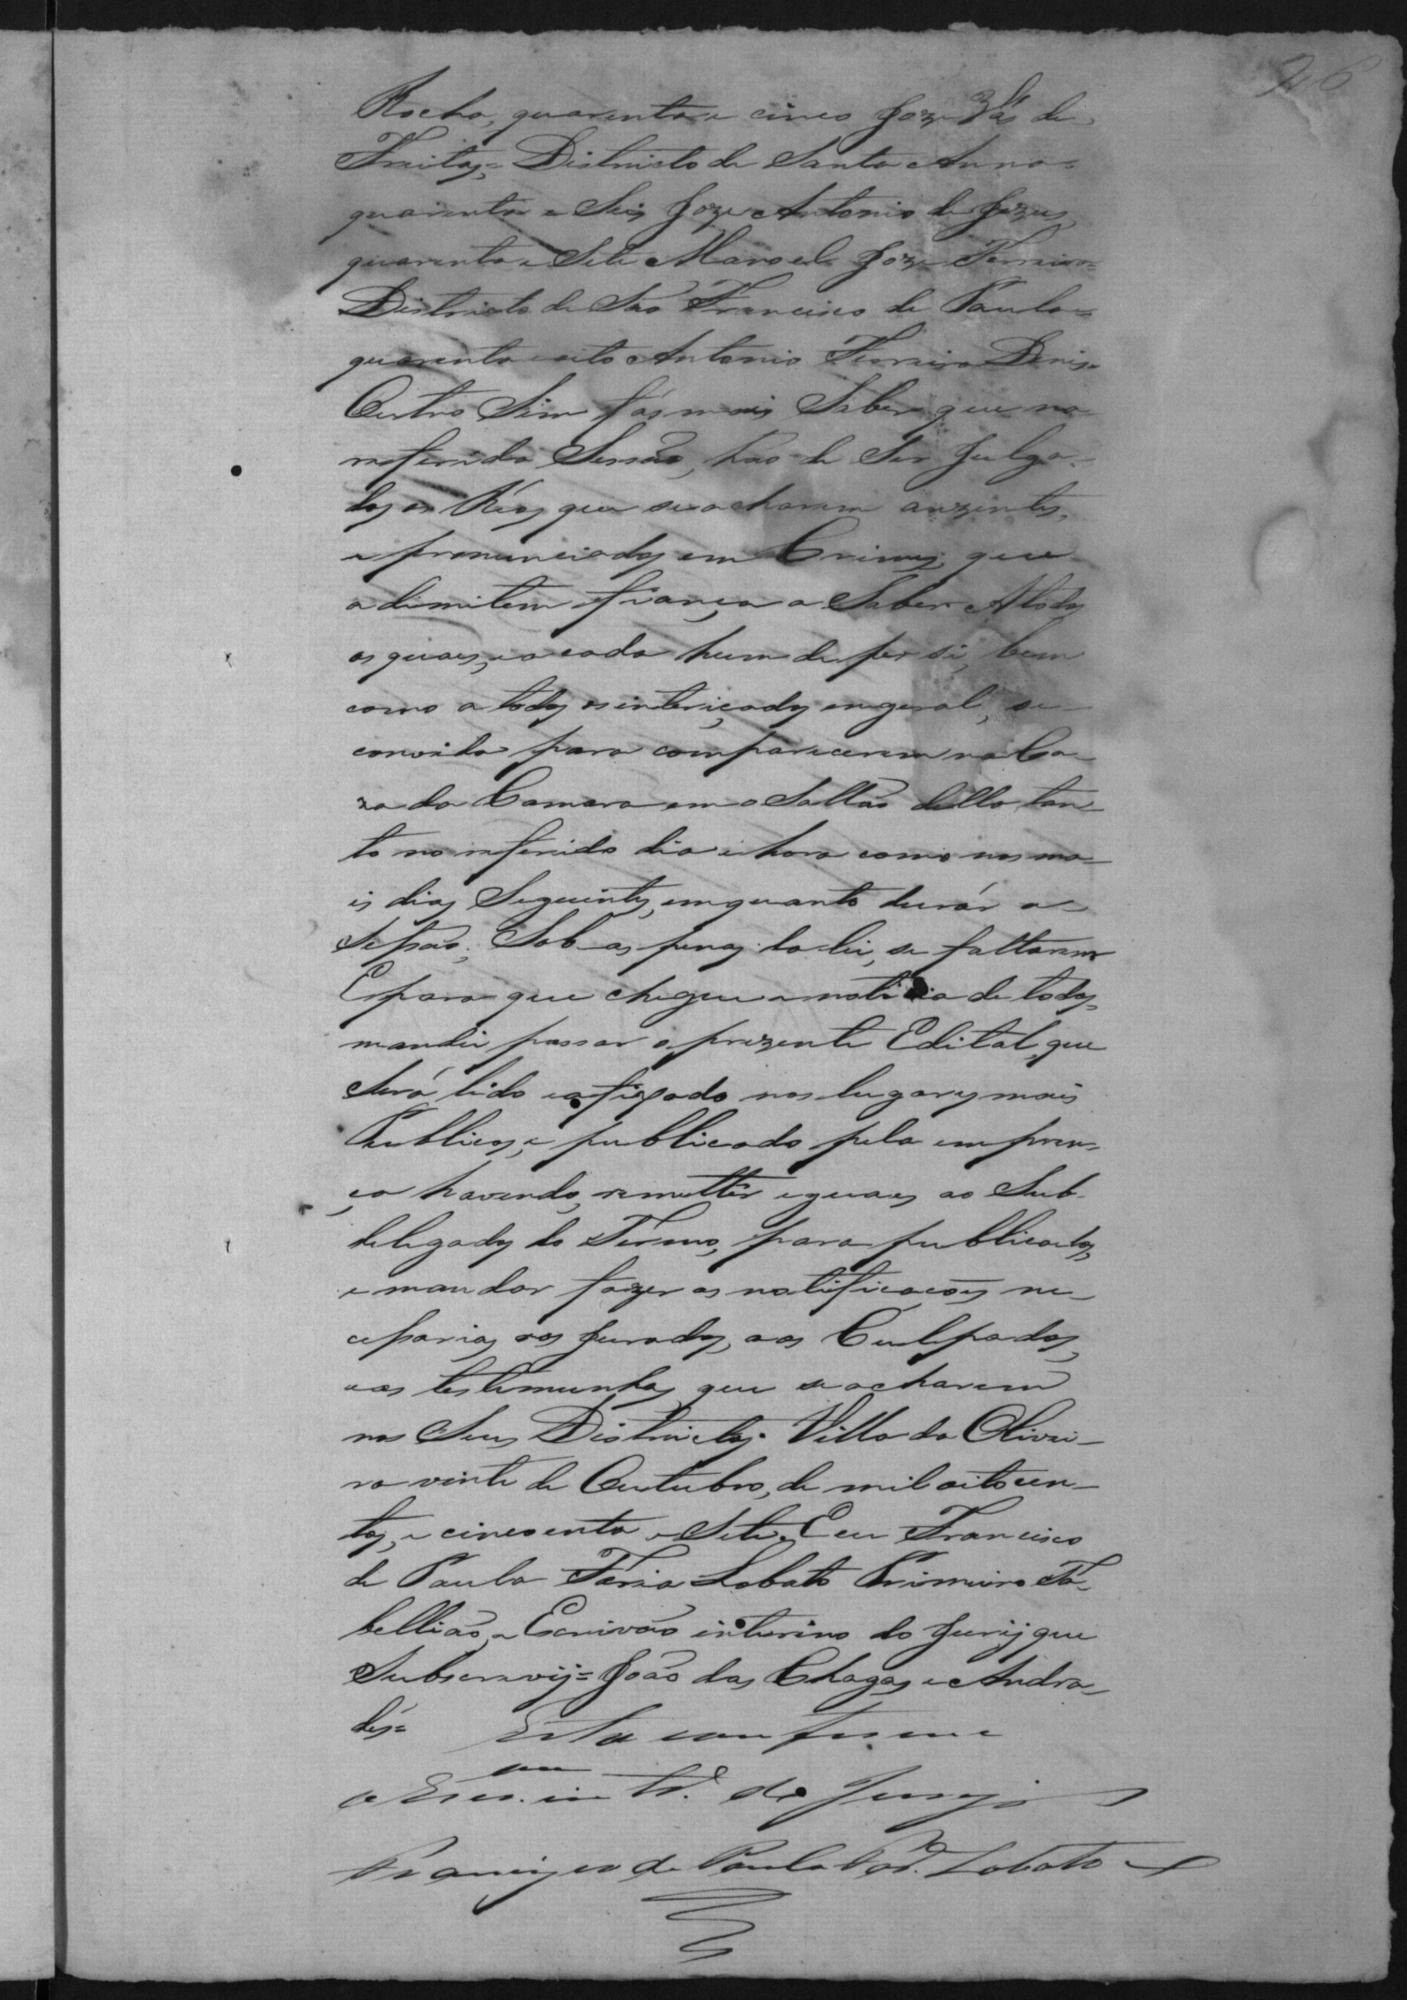 26
Rocha, quarenta e cinco Joze de
Freitas,= Districto de Santa Anna=
quarenta e Seis Joze Antonio de Jezus,
quarenta e Sete Manoel Joze Ferreira=
Districto de São Francisco de Paula=
quarenta e oito Antonio Ferreira Diniz=
Outro Sim faço mais Saber que na
referida Sessão, hão de Ser Julga-
dos os Réos que se acharem auzentes,
e pronunciados em Crimes, que
adimitem fiança a Saber Atodos
os quaes, e a cada hum de per si, bem
como a todos os intereçados em geral, se
convida para comparecerem na Ca-
za da Camara em o Sallão della tan-
to no referido dia e hora como nos ma-
is dias Seguintes, emquanto durár a
Sessão, Sob as penas da lei, se faltarem
E para que chegue a noticia de todos,
mandei passar o prezente Edital, que
Será lido e afixado nos lugares mais
Publicos, e publicado pela empren-
ça havendo, remettêr iguaes ao Sub-
delegados do Termo, para publicalos,
e mandar fazer as notificacoẽs ne-
cessarias aos Jurados, aos Culpados,
e as testemunhas que se acharem
nos Seus Districtos. Villa da Olivei-
ra vinte de Outubro, de mil oitocen-
tos, e cincoenta e Sete. Eu Francisco
de Paula Faria Lobato Primeiro Ta-
bellião, e Escrivão interino do Jurij que
Subscrevij= João das Chagas e Andra-
des= Esta conforme
o Escr. int.º do Jury
Francisco de Paula Lobato